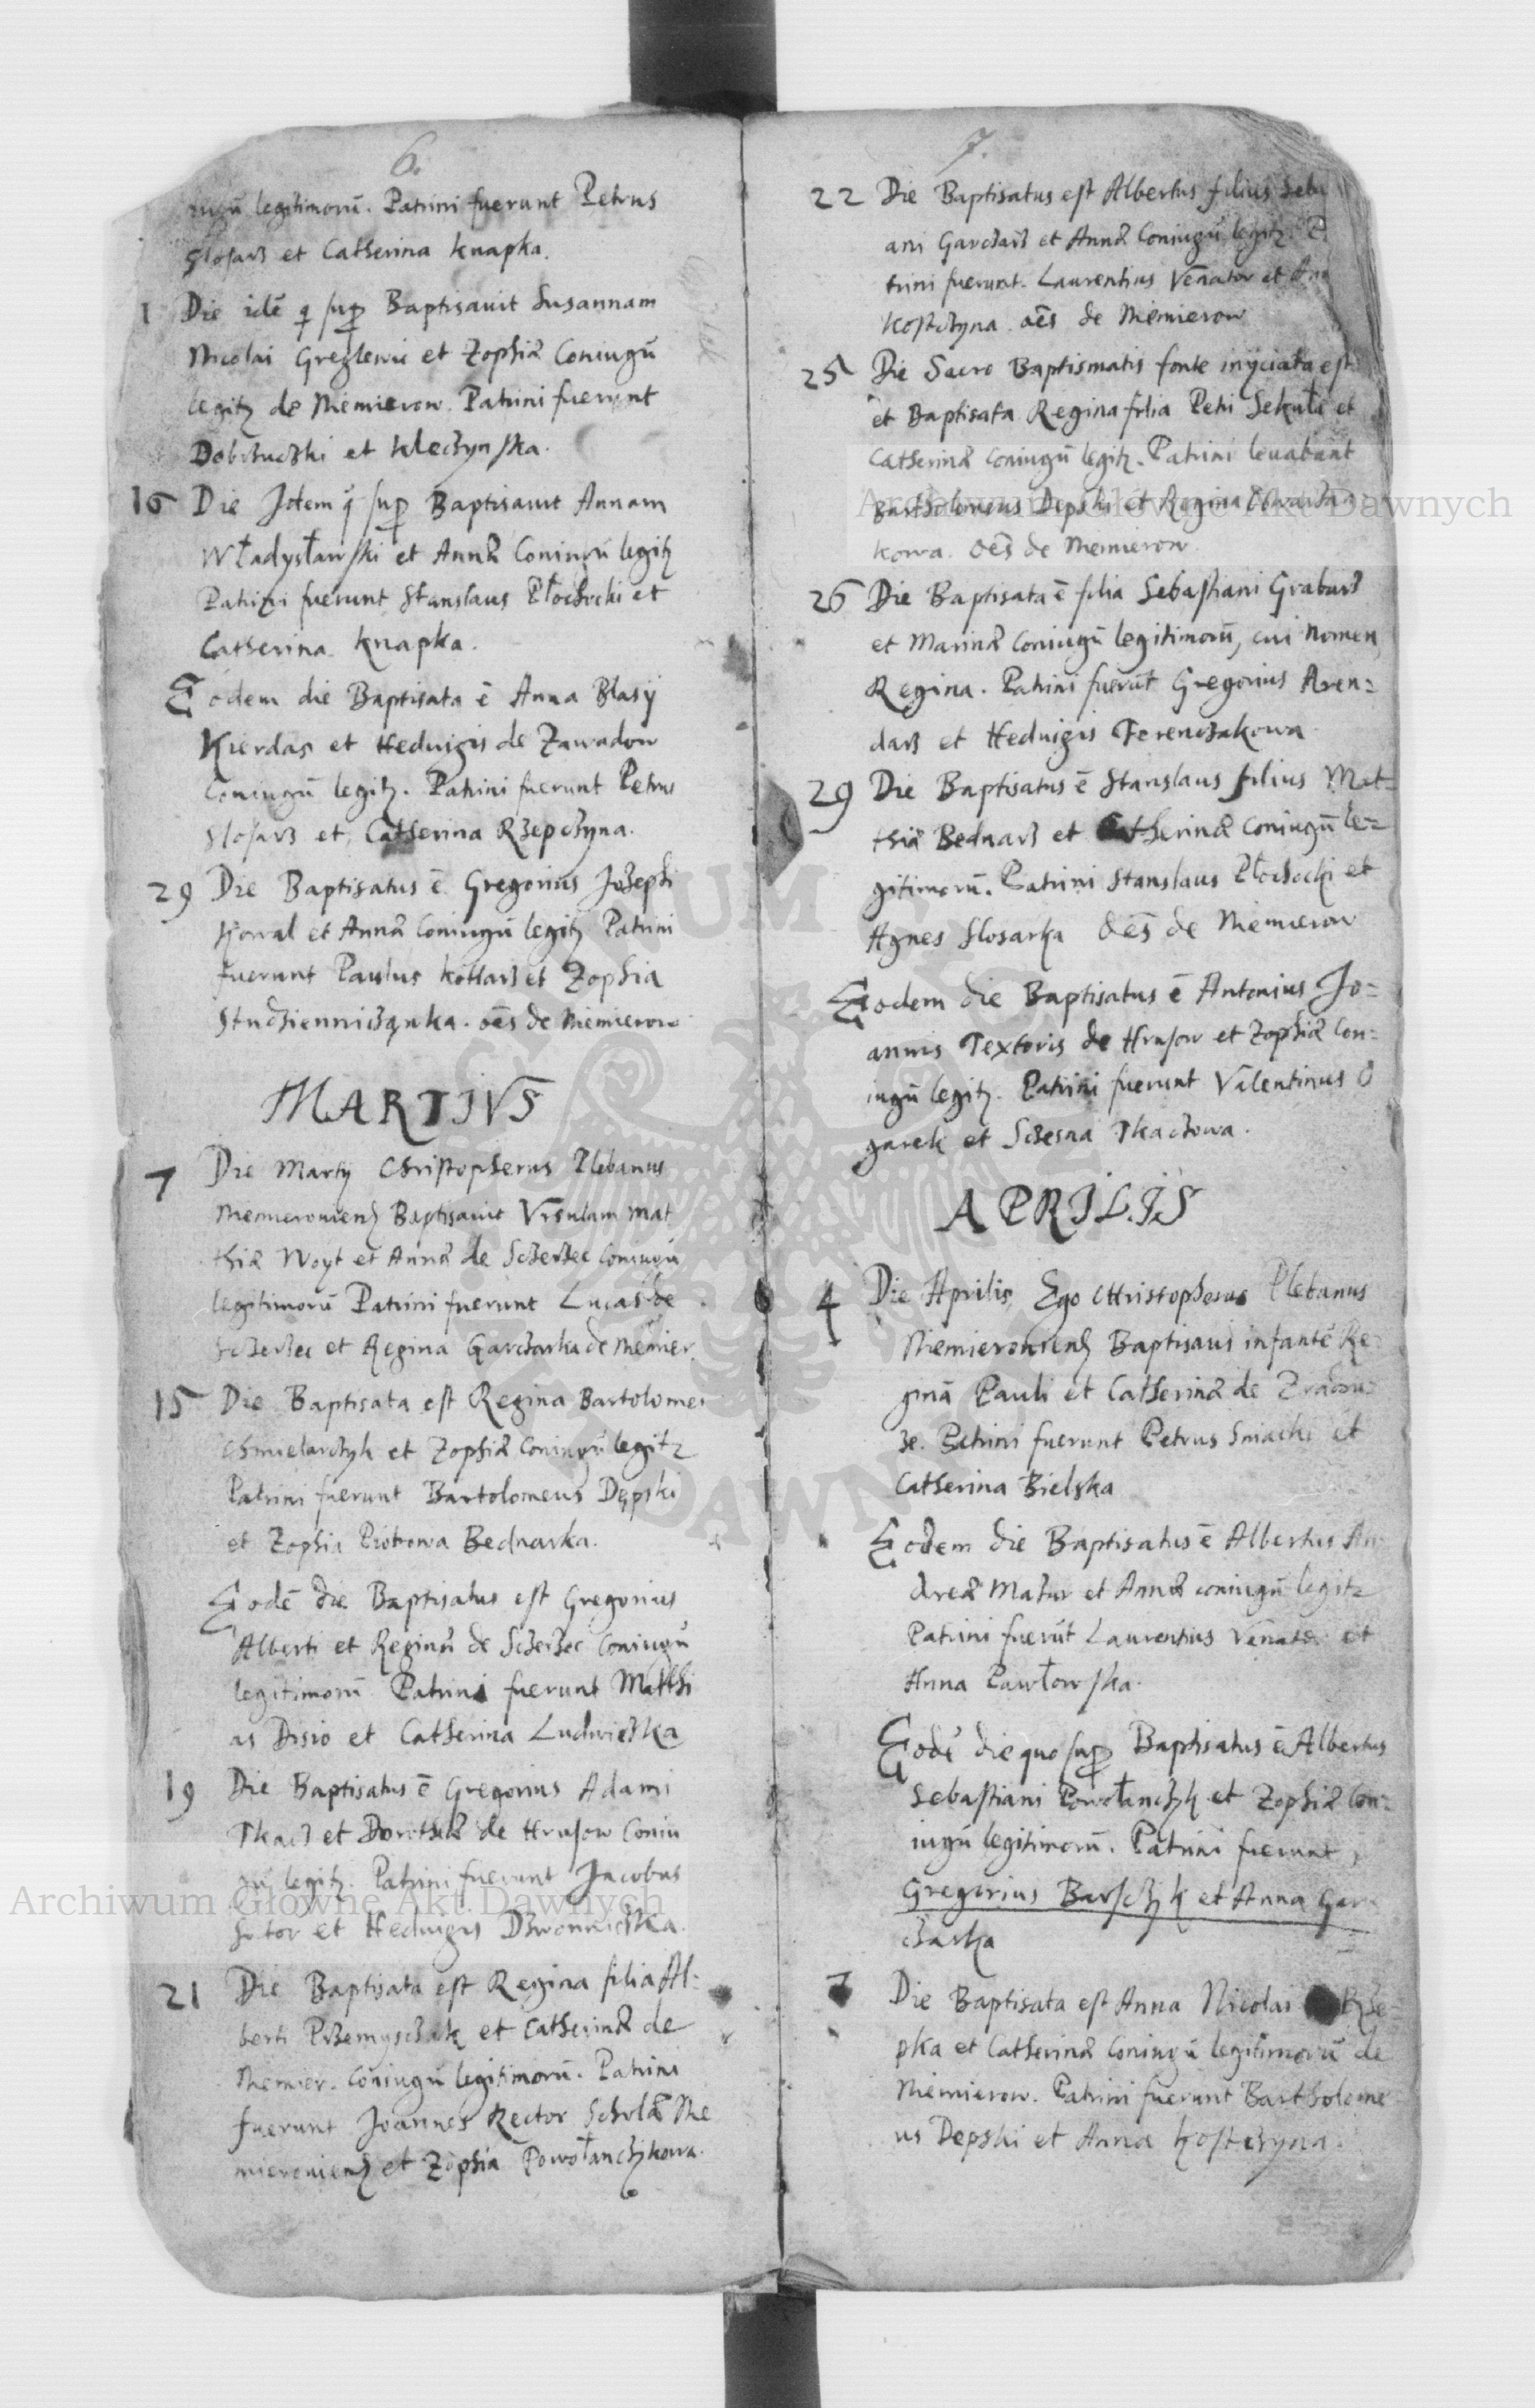 6.
iugū legitimorū. Patrini fuerunt Petrus
Slosarz et Catherina Knapka.
1 Die idē q supr Baptisavit Susannam
Nicolai Greglewic et Zophiæ Coniugū
legitz de Niemierow. Patrini fuerunt
et Kleczynska.
16 Die Idem q̄ supr Baptisavit Annam
Władysławski et Annæ Coniugū legitz
Patrini fuerunt Stanslaus Płochocki et
Catherina Knapka.
Eodem die Baptisata ē Anna Blasÿ
Kierdas et Heduigis de Zawadow
Coniugū legitz. Patrini fuerunt Petrus
Slosarz et Catherina Rzepczyna.
29 Die Baptisatus ē Gregorius Josephi
Kowal et Annæ Coniugū legitz Patrini
fuerunt Paulus Kotlarz et Zophia
Studzienniczanka. oēs de Niemierow
MARTIVS
7 Die Martÿ Christopherus Plebanus
Niemierouiens Baptisauit Vrsulam Mat
thiæ Woyt et Annæ de Sczerzec Coniugū
legitimorū Patrini fuerunt Lucas de
Sczerzec et Regina Garczarka de Niemier.
15 Die Baptisata est Regina Bartolomei
Chmielarczyk et Zophiæ Coniugū legitz
Patrini fuerunt Bartolomeus Dępski
et Zophia Piotrowa Bednarka.
Eodē die Baptisatus est Gregorius
Alberti et Reginæ de Sczerzec Coniugū
legitimorū Patrini fuerunt Matthi
as Disio et Catherina Ludwiczka
19 Die Baptisatus ē Gregorius Adami
Tkacz et Dorotheæ de Hrusow Coniu
gū legitz. Patrini fuerunt Jacobus
Sutor et Heduigis Dzwonniczka.
21 Die Baptisata est Regina filia Al=
berti Przemysczak et Catherinæ de
Niemier. Coniugū legitimorū. Patrini
fuerunt Joannes Rector Scholæ Nie
mierouiens et Zophia Powołanczykowa.
7.
22 Die Baptisatus est Albertus filius Seba
ani Garczarz et Annæ Coniugū legitz. P
trini fuerunt. Laurentius Venator et An
Kostczyna. oēs de Niemierow
25 Die Sacro Baptismatis fonte inÿciata est
et Baptisata Regina filia Petri Sekuła et
Catherinæ Coniugū legitz. Patrini leuabant
Bartholomeus Depski et Regina
kowa. Oēs de Niemierow
26 Die Baptisata ē filia Sebastiani Grabarz
et Marinæ Coniugū legitimorū, cui nomen
Regina. Patrini fuerūt Gregorius Aren=
darz et Heduigis Ferenczakowa
29 Die Baptisatus ē Stanslaus filius Mat=
thiæ Bednarz et Catherinæ Coniugū le=
gitimorū. Patrini Stanslaus Płochocki et
Agnes Slosarka Oēs de Niemierow
Eodem die Baptisatus ē Antonius Jo=
annis Textoris de Hrusow et Zophiæ Con=
iugū legitz. Patrini fuerunt Valentinus O
garek et Sczesna Tkaczowa.
APRILIS
4 Die Aprilis Ego Christopherus Plebanus
Niemierouiens Baptisaui infantē Re=
ginā Pauli et Catherinæ de
ze. Patrini fuerunt Petrus et
Catherina Bielska
Eodem die Baptisatus ē Albertus An
dreæ Mazur et Annæ coniugū legitz
Patrini fuerūt Laurentius Venator et
Anna Pawłowska.
Eodē die quo supr Baptisatus ē Albertus
Sebastiani Powołanczyk et Zophiæ Con=
iugū legitimorū. Patrini fuerunt
Gregorius Barsczyk et Anna Gar
czarka
7 Die Baptisata est Anna Nicolai Rze=
pka et Catherinæ Coniugū legitimorū de
Niemierow. Patrini fuerunt Bartholome
us Depski et Anna Kostczyna.
Archiwum Główne Akt Dawnych
Archiwum Główne Akt Dawnych